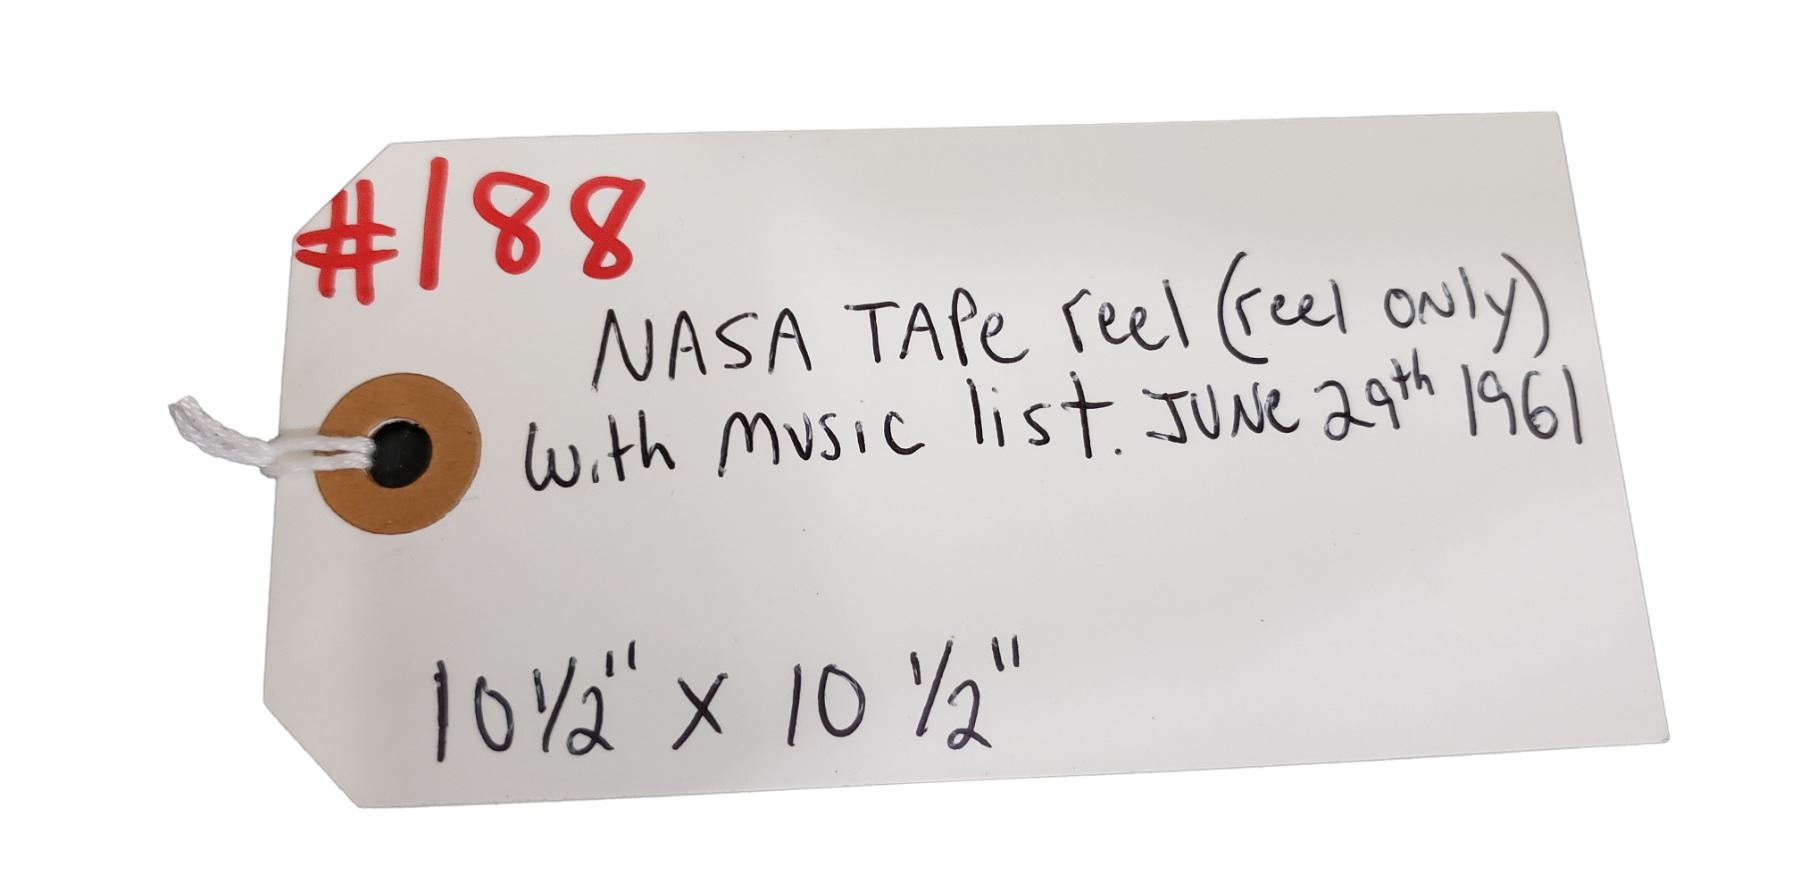 #188
NASA TAPe reel (reel ONly)
With Music list. JUNe 29th 1961
10 1/2" x 10 1/2"